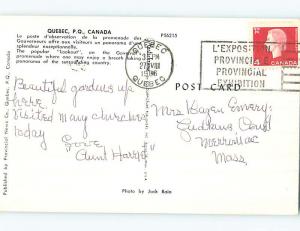 QUEBEC, P.Q., CANADA
P55215
Le poste d'observation de la promenade des
Gouverneurs offre aux visiteurs un panorama d'une
splendeur exceptionnelle.
The popular "Lookout", on the Governor's
promenade where one may enjoy a breath taking
panorama of the surrounding country.
QUEBEC
PM
27
QUEBEC
L'EXPOSITION
PROVINCIALE
PROVINCIAL
EXHIBITION
4
CANADA
POST CARD
Beautiful gardens up
here.
Visited many churches
today
Love
Aunt Harriet
Mrs Hazen Emery
Indians
Merrimac
Mass.
Published by Provincial News Co., Quebec, P.Q.
Photo by Jack Bain